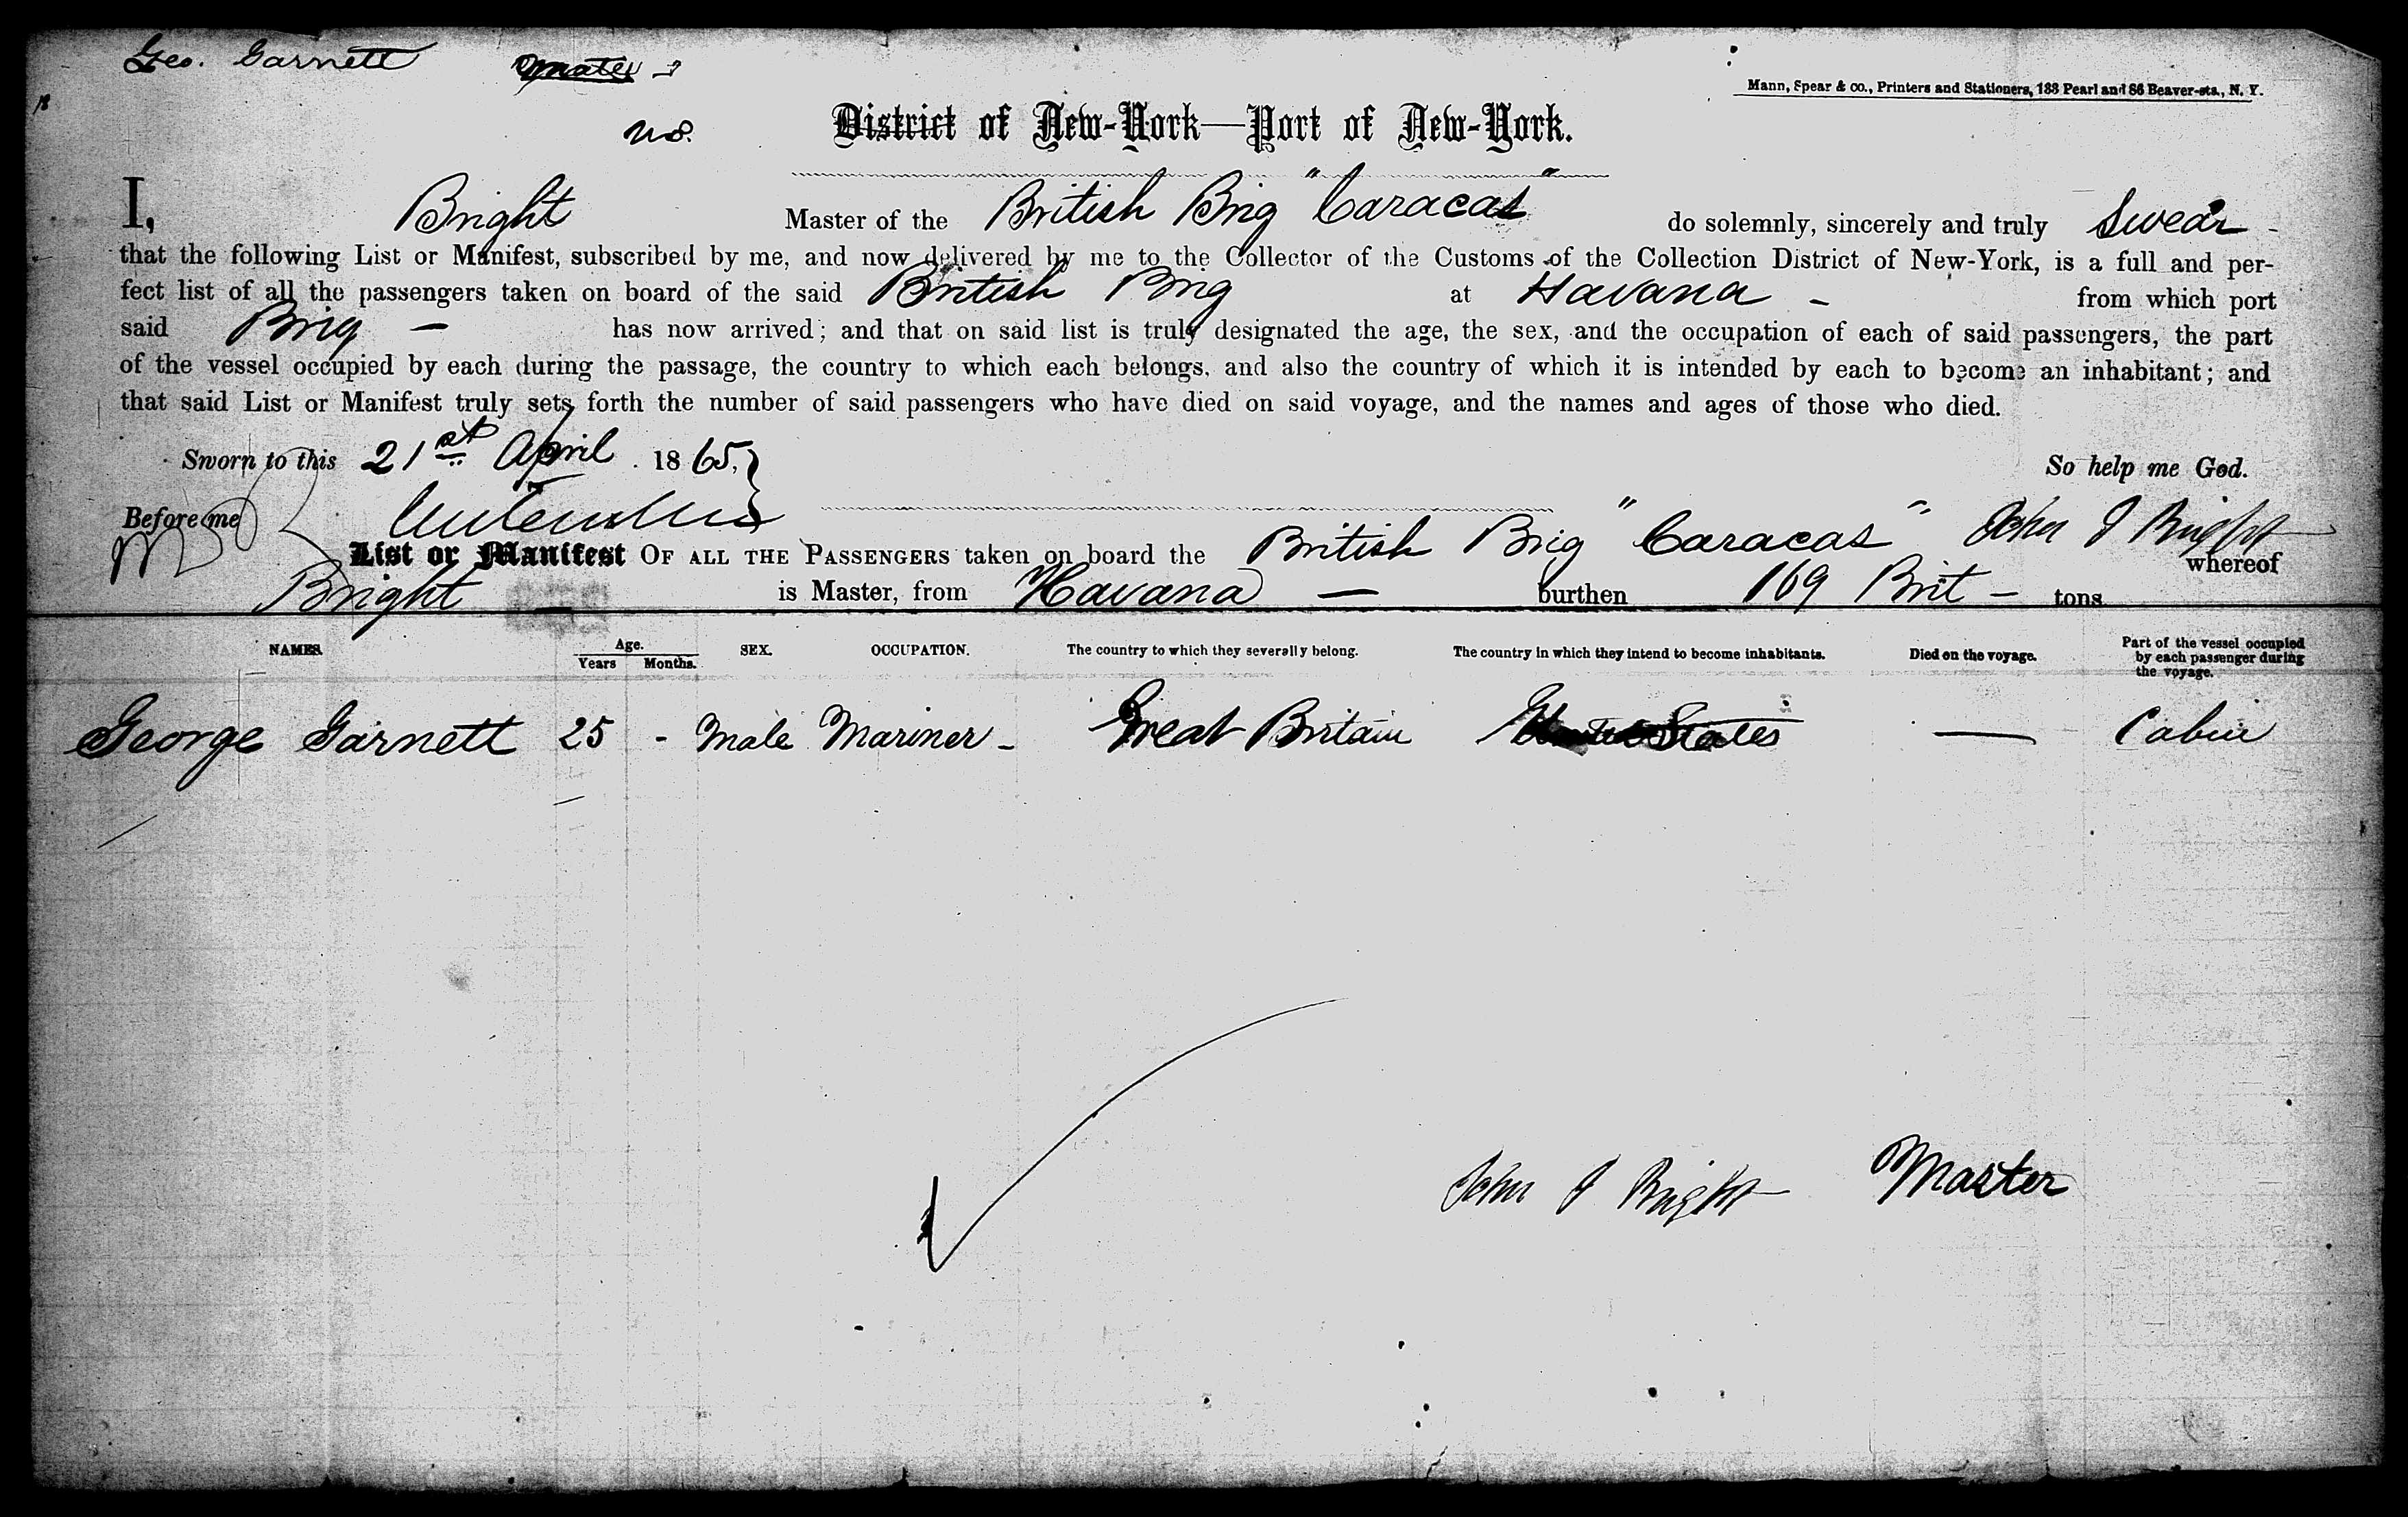 Geo. Garnett
Mann, Spear & Co., Printers and Stationers, 133 Pearl and 86 Beaver-sts., N. Y.
District of New-York—Port of New-York.
I, Bright Master of the British Brig "Caracas" do solemnly, sincerely and truly Swear -
that the following List or Manifest, subscribed by me, and now delivered by me to the Collector of the Customs of the Collection District of New-York, is a full and per-
fect list of all the passengers taken on board of the said British Brig at Havana - from which port
said Brig - has now arrived; and that on said list is truly designated the age, the sex, and the occupation of each of said passengers, the part
of the vessel occupied by each during the passage, the country to which each belongs, and also the country of which it is intended by each to become an inhabitant; and
that said List or Manifest truly sets forth the number of said passengers who have died on said voyage, and the names and ages of those who died.
Sworn to this 21st April 1865, So help me God.
Before me John J Bright
List or Manifest OF ALL THE PASSENGERS taken on board the British Brig "Caracas" whereof
Bright - is Master, from Havana - burthen 169 Brit - tons
NAMES. Age. Years Months. SEX. OCCUPATION. The country to which they severally belong. The country in which they intend to become inhabitants. Died on the voyage. Part of the vessel occupied by each passenger during the voyage.
George Garnett 25 - Male Mariner - Great Britain States — Cabin
John J Bright Master